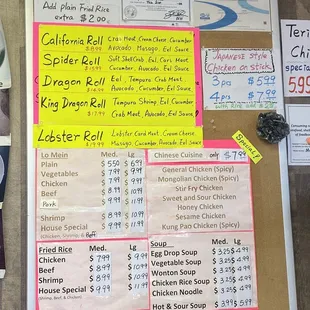 Add plain Fried Rice
extra $2.00
California Roll
Crab Meat, Cream Cheese Cucumber
Avocado Masago, Eel Sauce
Spider Roll
Soft Shell Crab, Eel, Cucumber
Avocado, Eel Sauce
Dragon Roll
Eel, Tempura Crab Meat,
Avocado, Cucumber, Eel Sauce
King Dragon Roll
Tempura Shrimp Eel, Cucumber
Crab Meat, Avocado, Eel Sauce
Lobster Roll
Masago, Cucumber, Avocado, Eel Sauce
Japanese Style
Chicken on stick
3pcs $5.99
4pcs $7.99
Special!
Teri
Chick
speci
5.99
Lo Mein Med. Lg
Plain $5.50 $6.99
Vegetables $7.99 $9.99
Chicken
Beef
Pork
Shrimp $8.99 $10.99
House Special $9.99 $11.99
(Chicken, Shrimp, & Beef)
Chinese Cuisine only $7.99
General Chicken (Spicy)
Mongolian Chicken (Spicy)
Stir Fry Chicken
Sweet and Sour Chicken
Honey Chicken
Sesame Chicken
Kung Pao Chicken (Spicy)
Fried Rice Med. Lg
Chicken $7.99 $9.99
Beef $8.99 $10.99
Shrimp $8.99 $10.99
House Special $9.99 $11.99
(Shrimp, Beef, & Chicken)
Soup Med. Lg
Egg Drop Soup $3.25 $4.99
Vegetable Soup $3.25 $4.99
Wonton Soup $3.25 $4.99
Chicken Rice Soup $3.25 $4.99
Chicken Noodle $3.25 $4.99
Hot & Sour Soup $3.99 $5.99